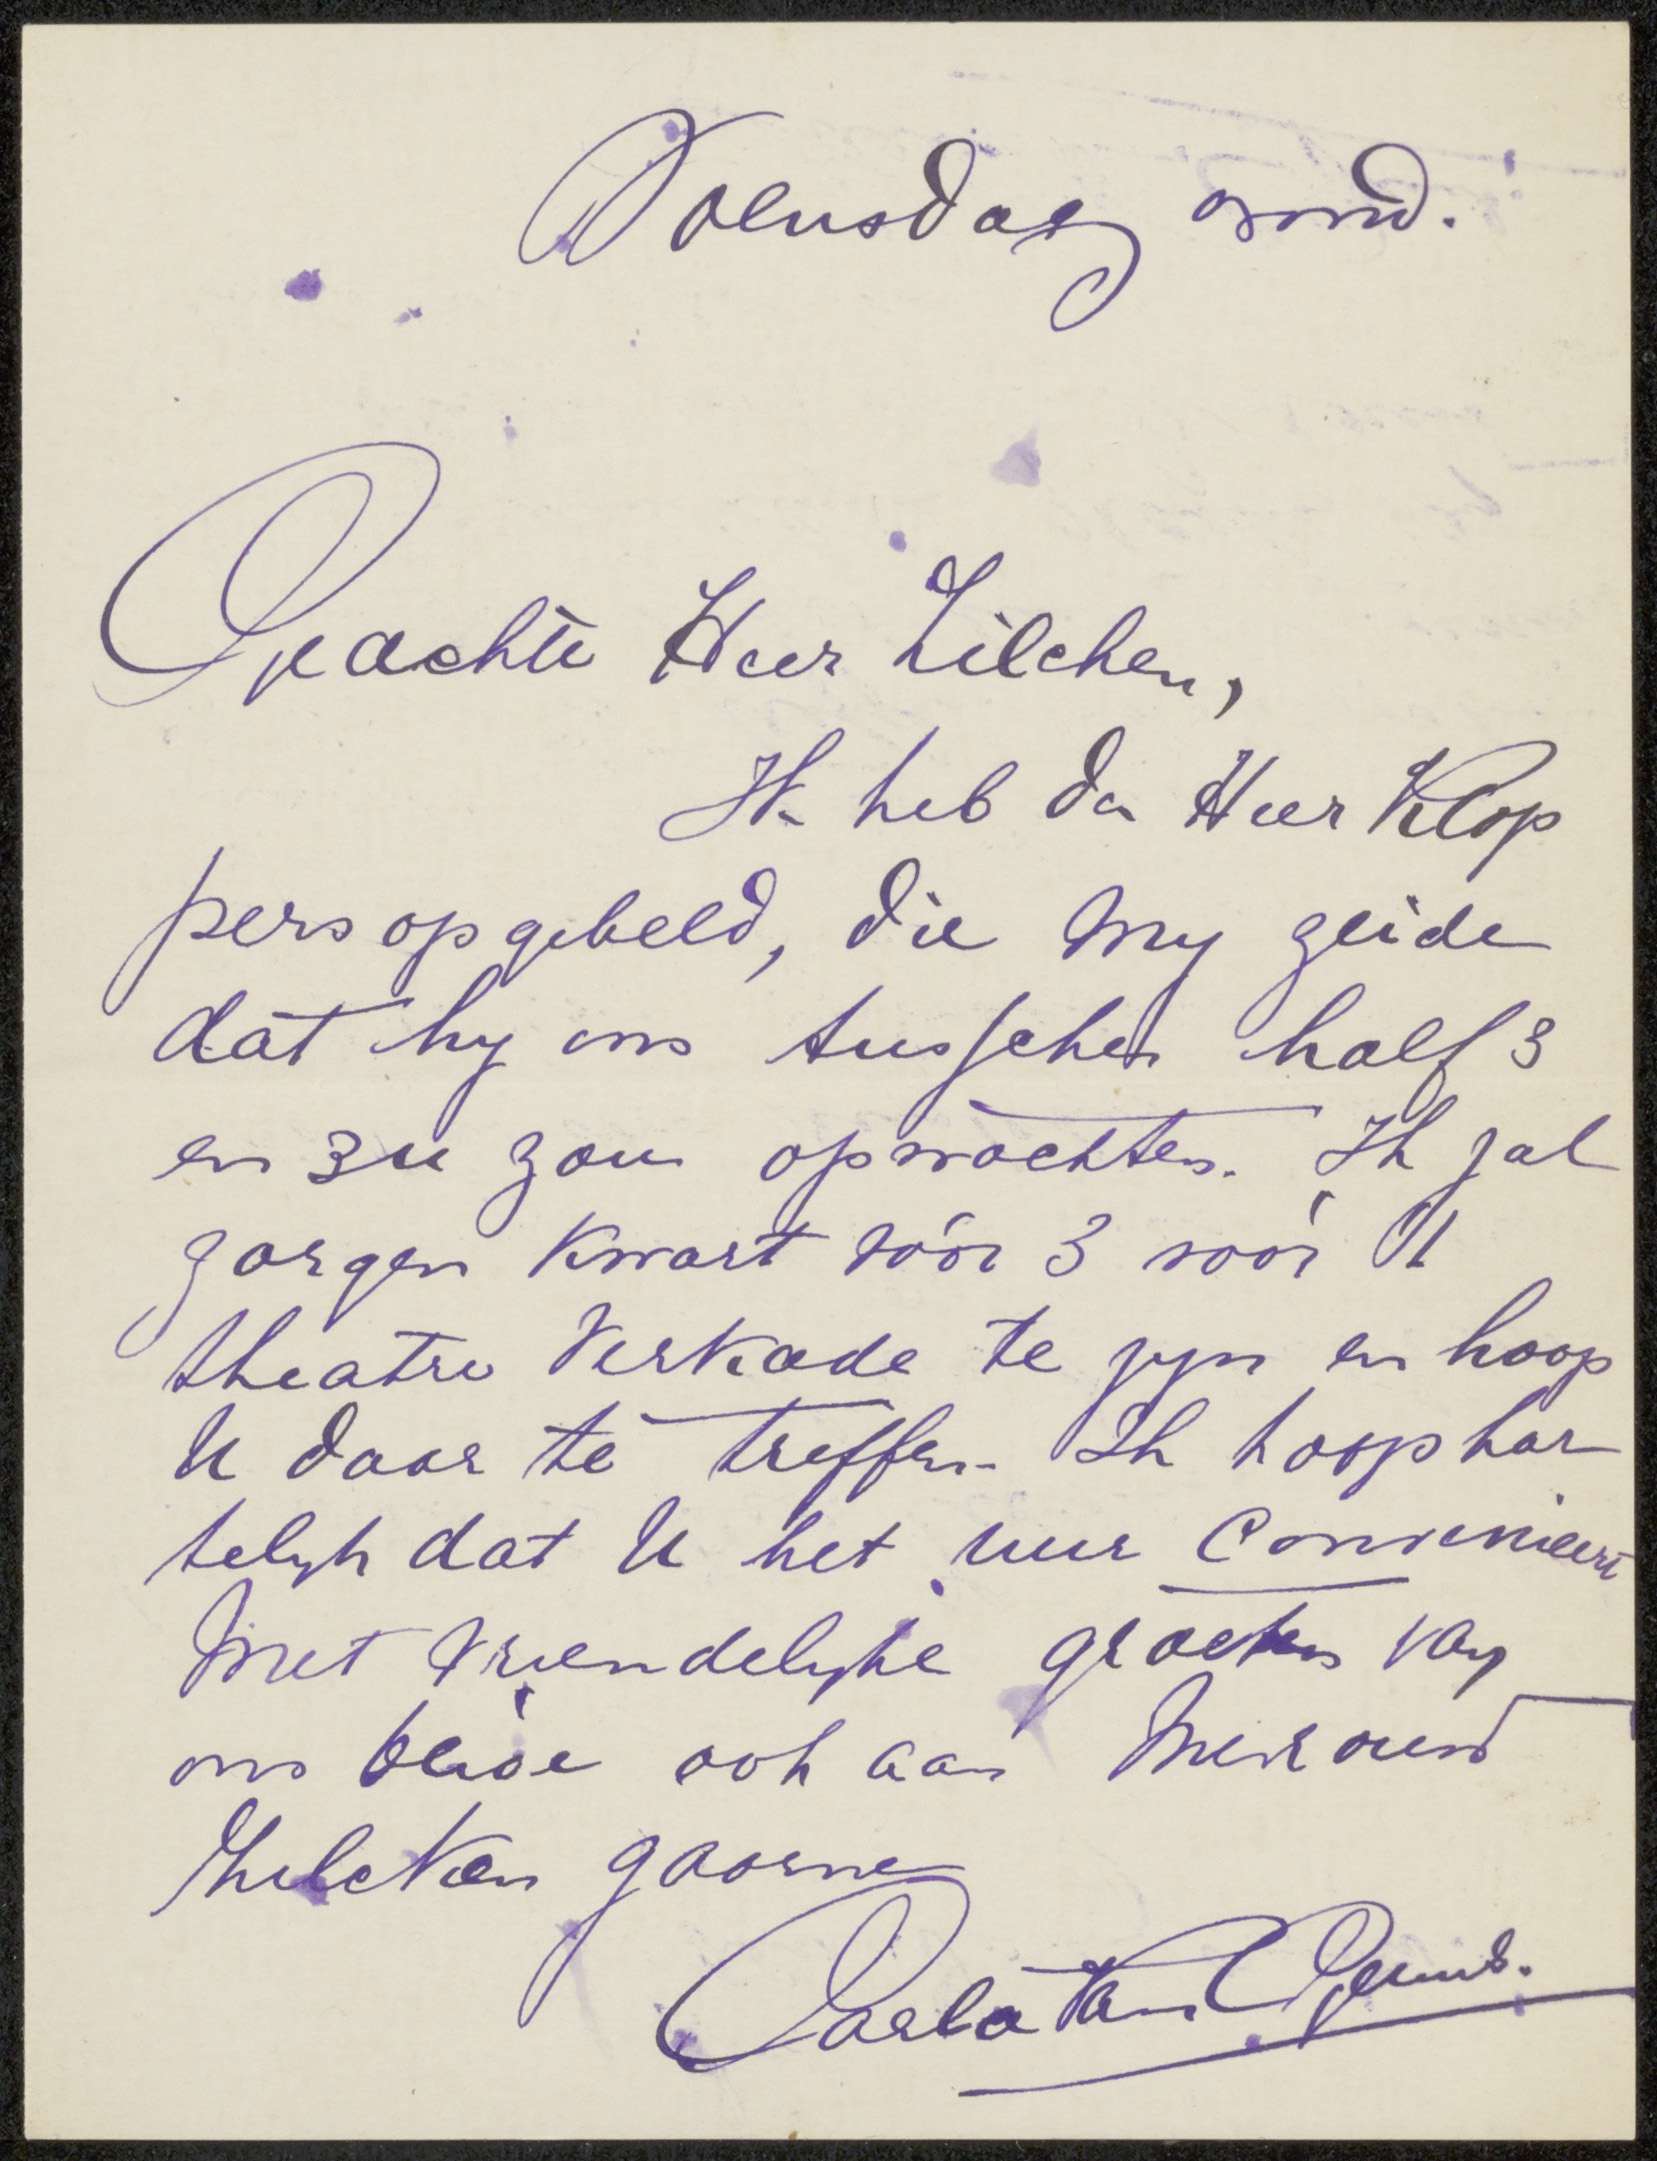 Woensdag avond.
Geachte Heer Zilcken,
Ik heb den Heer Klop
pers opgebeld, die my zeide
dat hy ons tusschen half 3
en 3 u zou opwachten. Ik zal
zorgen kwart vóór 3 voor 't
theatre Verkade te zyn en hoop
U daar te treffen. Ik hoop har
telyk dat U het uur convenieert
Met vriendelyke groeten van
ons beide ook aan Mevrouw
Zilcken gaarne
Carla van